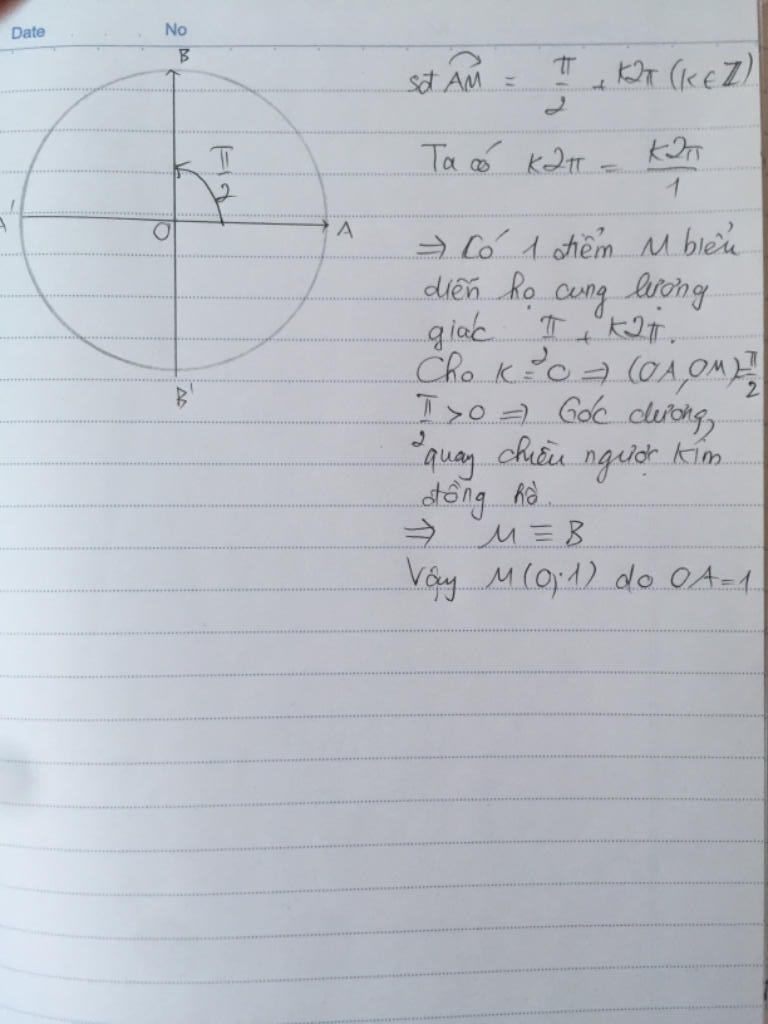 Date No
B
π/2
A'
O
A
B'
sđ AM = π/2 + k2π (k ∈ Z)
Ta có k2π = k2π/1
⇒ Có 1 điểm M biểu
diễn họ cung lượng
giác π/2 + k2π.
Cho k = 0 ⇒ (OA, OM) = π/2
π/2 > 0 ⇒ Góc dương,
quay chiều ngược kim
đồng hồ.
⇒ M ≡ B
Vậy M(0;1) do OA=1